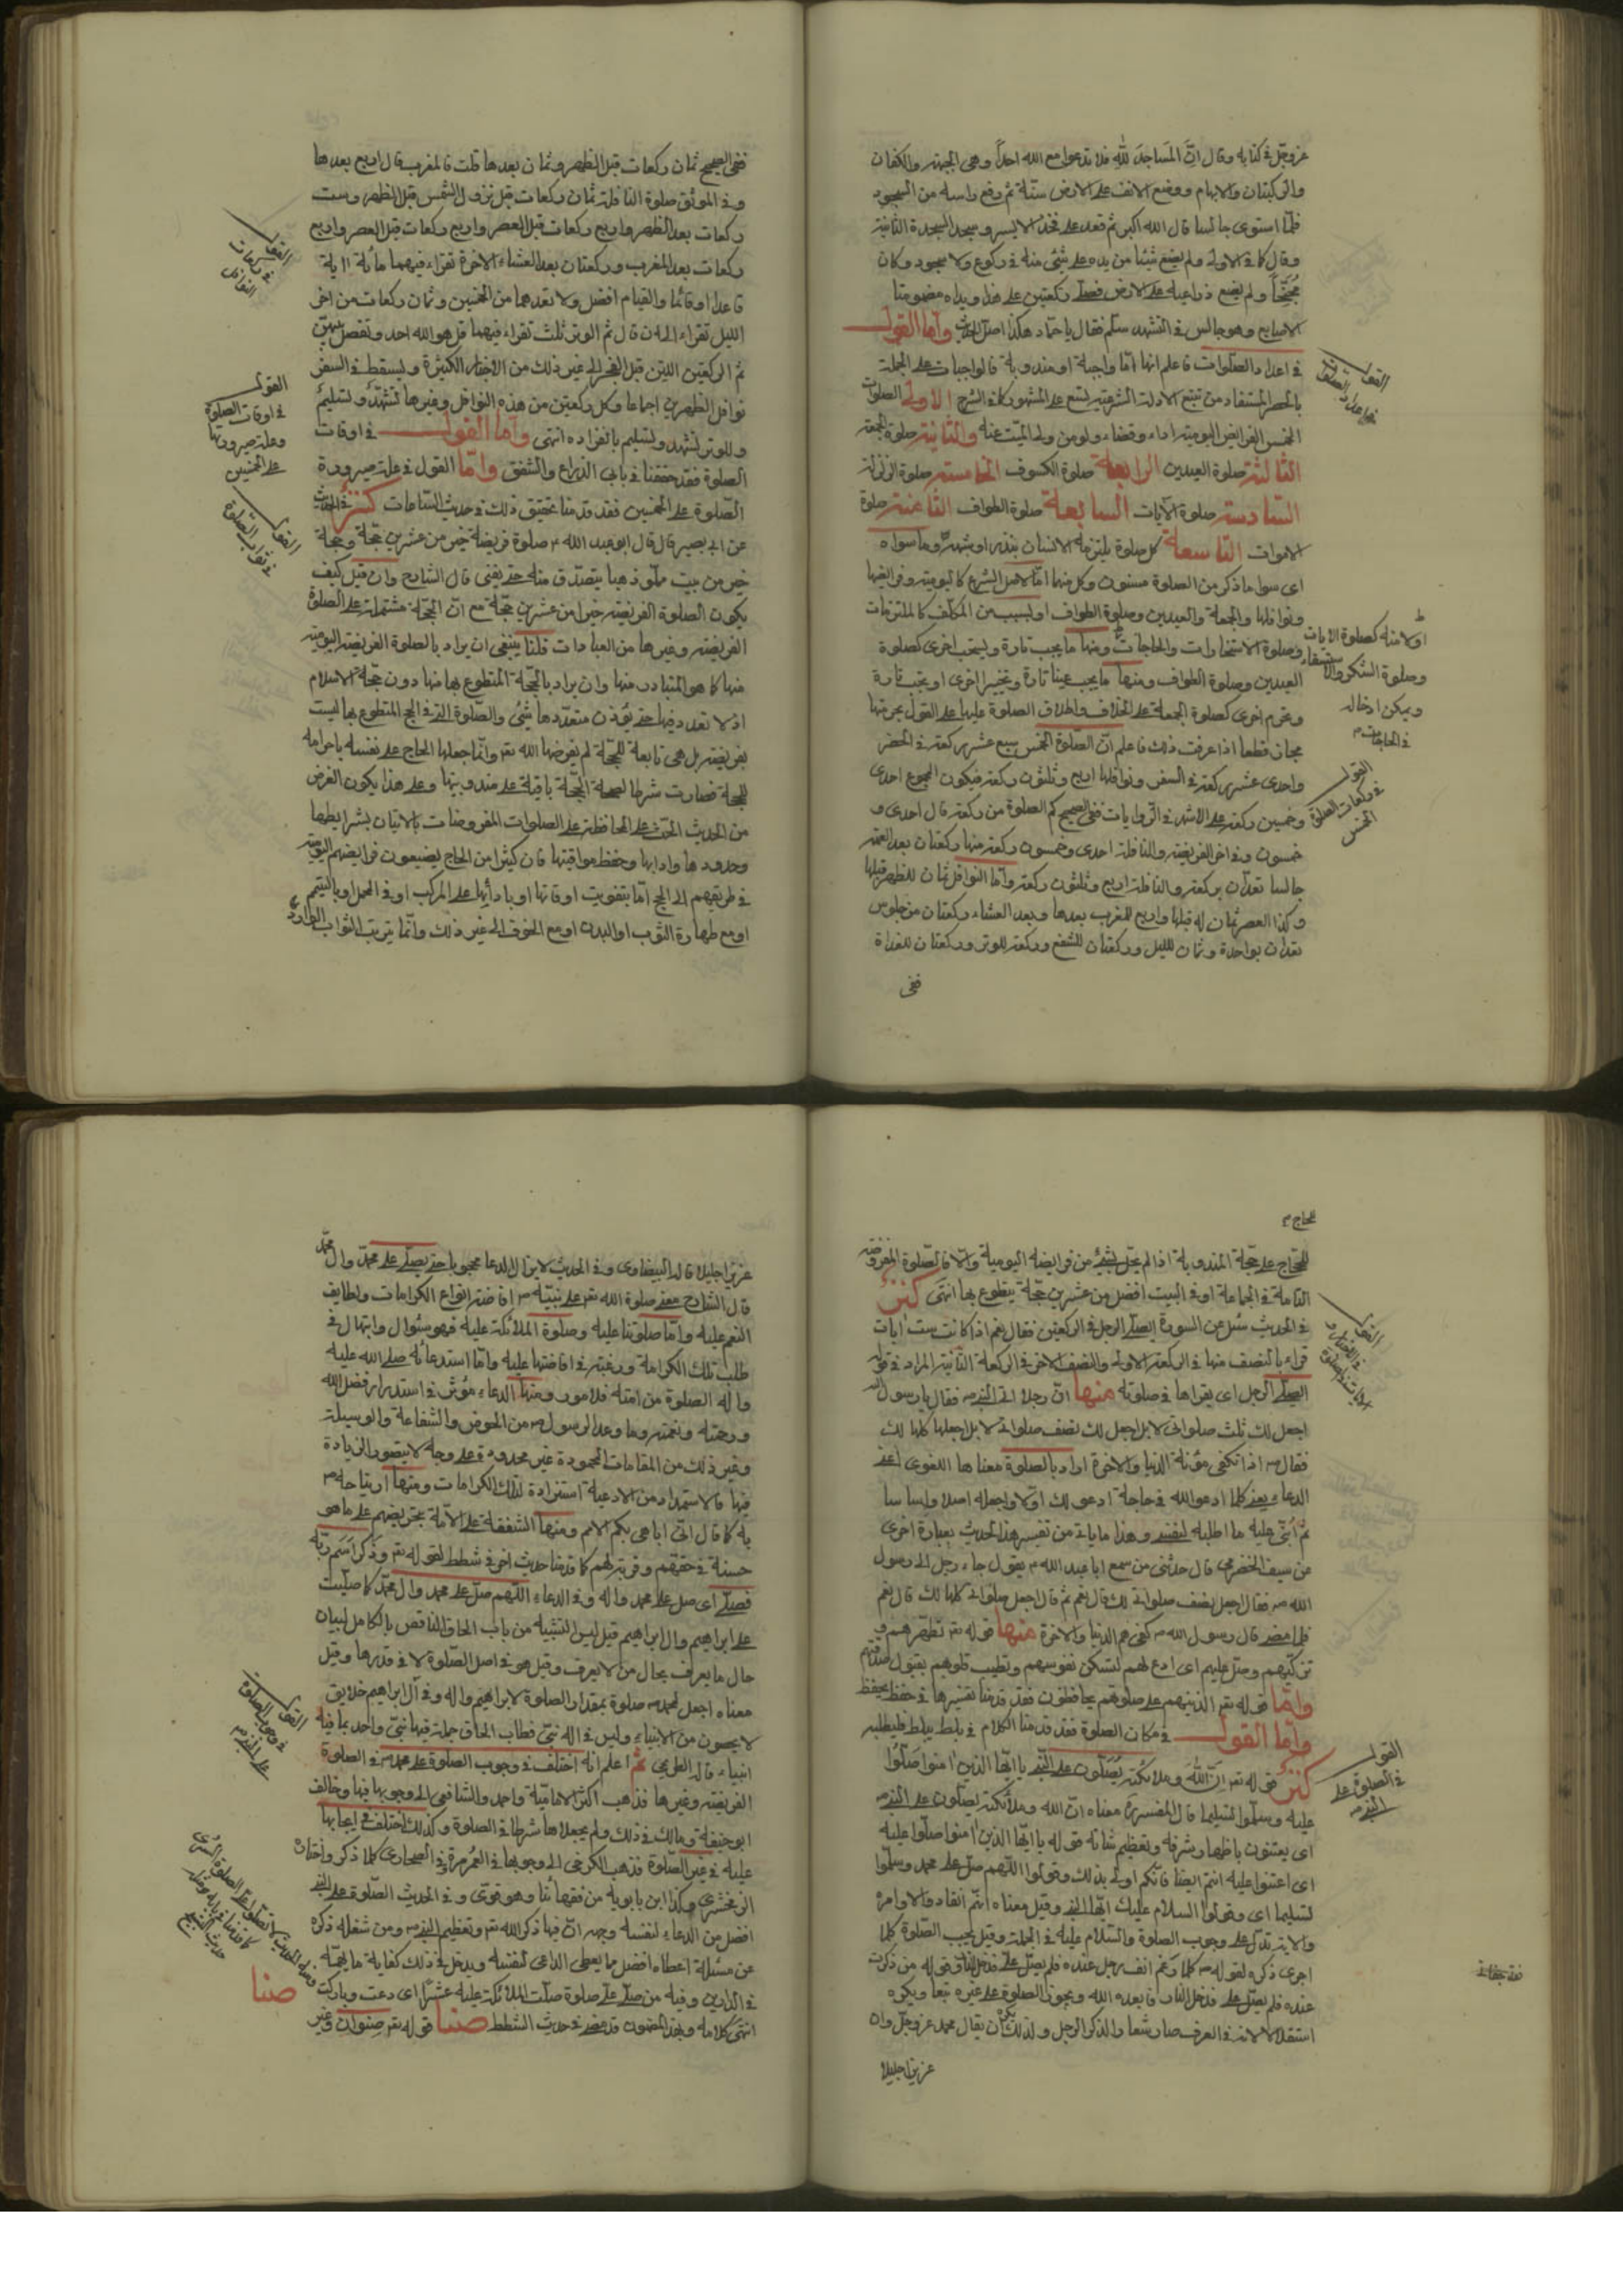 عزوجل في كتابه وقال ان المساجد لله فلا تدعوا مع الله احدا وهي الجبهة والكفان
والركبتان والابهام ووضع الانف على الارض سنة ثم رفع راسه من السجود
فلما استوى جالسا قال الله اكبر ثم قعد على فخذه الايسر وسجد السجدة الثانية
وقال كما في الاولى ولم يضع شيئا من بدنه على شيء منه في ركوع ولا سجود وكان
مجنحا ولم يضع ذراعيه على الارض فصلى ركعتين على هذا ويداه مضمومتا
الاصابع وهو جالس في التشهد سلم فقال يا حماد هكذا اصل الحديث واما القول
في اعداد الصلوات فاعلم انها اما واجبة او مندوبة فالواجبات على الجملة
بالحصر المستفاد من تتبع الادلة الشرعية تسع على المشهور كما في الشرح الاولى الصلوات
الخمس الفرايض اليومية اداء وقضاء ولو من ولي الميت عنه والثانية صلوة الجمعة
الثالثة صلوة العيدين الرابعة صلوة الكسوف الخامسة صلوة الزلزلة
السادسة صلوة الآيات السابعة صلوة الطواف الثامنة صلوة
الاموات التاسعة كل صلوة يلتزمه الانسان بنذر او شبهه وما سواه
اى سوا ما ذكر من الصلوة مسنون وكل منها اما لاصل الشرع كاليومية وفرايضها
ونوافلها والجمعة والعيدين وصلوة الطواف او لسبب من المكلف كالملتزمات
وصلوة الاستخارات والحاجات ومنها ما يجب تارة ويستحب اخرى كصلوة
العيدين وصلوة الطواف ومنها ما يجب عينا تارة وتخييرا اخرى او يجب تارة
وتحرم اخرى كصلوة الجمعة على الخلاف واطلاق الصلوة عليها على القول بحرمتها
مجاز قطعا اذا عرفت ذلك فاعلم ان الصلوة الخمس سبع عشر ركعة في الحضر
واحدى عشر ركعة في السفر ونوافلها اربع وثلثون ركعة فيكون المجموع احدى
وخمسين ركعة على الاشهر في الروايات ففي الصحيح كم الصلوة من ركعة قال احدى و
خمسون وفي اخر الفريضة والنافلة احدى وخمسون ركعة منها ركعتان بعد العتمة
جالسا تعدان بركعة والنافلة اربع وثلثون ركعة واما النوافل ثمان للظهر قبلها
وكذا العصر ثمان له قبلها واربع للمغرب بعدها وبعد العشاء ركعتان من جلوس
تعدان بواحدة وثمان لليل وركعتان للشفع وركعة للوتر وركعتان للغداة
ففي
القول في اعداد الصلوات
او لامنه كصلوة الآيات
وصلوة الشكر والاستسقاء
ويمكن ادخاله
في الحاجات م
القول
في ركعات الصلوة
الخمس
ففي الصحيح ثمان ركعات قبل الظهر وثمان بعدها قلت فالمغرب قال اربع بعدها
وفي الموثق صلوة النافلة ثمان ركعات قبل نزول الشمس قبل الظهر وست
ركعات بعد الظهر واربع ركعات قبل العصر واربع ركعات قبل العصر واربع
ركعات بعد المغرب وركعتان بعد العشاء الاخرة تقراء فيهما مائة اية
قاعدا او قائما والقيام افضل ولا تعدهما من الخمسين وثمان ركعات من اخر
الليل تقراء الى ان قال ثم الوتر ثلث تقراء فيهما قل هو الله احد وتفصل بينهن
ثم الركعتين اللتين قبل الفجر الى غير ذلك من الاخبار الكثيرة ويسقط في السفر
نوافل الظهرين اجماعا وكل ركعتين من هذه النوافل وغيرها تشهد وتسليم
وللوتر تشهد وتسليم بانفراده انتهى واما القول في اوقات
الصلوة فقد حققنا في بابي الذراع والشفق واما القول في علة صيرورة
الصلوة على الخمسين فقد قدمنا تحقيق ذلك في حديث الساعات كنز في الحديث
عن ابي بصير قال قال ابو عبد الله م صلوة فريضة خير من عشرين حجة وحجة
خير من بيت مملو ذهبا يتصدق منه حتى يفنى قال الشارح وان قيل كيف
يكون الصلوة الفريضة خيرا من عشرين حجة مع ان الحجة مشتملة على الصلوة
الفريضة وغيرها من العبادات قلنا ينبغى ان يراد بالصلوة الفريضة اليومية
منها كما هو المتبادر منها وان يراد بالحجة المتطوع بها منها دون حجة الاسلام
اذ لا تعدد فيها حتى يوذن متعددها شيء والصلوة التي في الحج المتطوع بها ليست
بفريضة بل هى تابعة للحجة لم يفرضها الله تعـ وانما جعلها الحاج على نفسه باحرامه
للحجة فصارت شرطا لصحة الحجة باقية على مندوبيتها وعلى هذا يكون الغرض
من الحديث الحث على المحافظة على الصلوات المفروضات بالاتيان بشرايطها
وحدودها وادابها وحفظ مواقيتها فان كثيرا من الحاج يضيعون فرايضهم اليومية
في طريقهم الى الحج اما بتفويت اوقاتها او بادائها على المركب او في المحمل او بالتيمم
او مع طهارة الثوب او البدن او مع الخوف الى غير ذلك وانما يترتب الثواب الوارد
القول
في ركعات
النوافل
القول
في اوقات الصلوة
وعلة صيرورتها
على الخمسين
القول
في ثواب الصلوة
للحاج م
للحاج على حجة المندوبة اذا لم يخل بشيء من فرايضه اليومية والا فالصلوة المفروضة
التامة في الجماعة او في البيت افضل من عشرين حجة يتطوع بها انتهى كنز
في الحديث سئل عن السورة ايصلى الرجل في الركعتين فقال نعم اذا كانت ست ايات
قراء بالنصف منها في الركعة الاولى والنصف الاخر في الركعة الثانية المراد في قوله
ايصلى الرجل اى يقراها في صلوته منها ان رجلا اتى النبي م فقال يا رسول الله
اجعل لك ثلث صلواتى لا بل اجعل لك نصف صلواتى لا بل اجعلها كلها لك
فقال م اذا تكفى مؤنة الدنيا والاخرة اراد بالصلوة معناها اللغوى اعنى
الدعاء يعنى كلما ادعو الله في حاجة ادعو لك اولا واجعله اصلا واساسا
ثم ابنى عليه ما اطلبه لنفسى وهذا ما ياتى من تفسير هذا الحديث بعبارة اخرى
من سيف الحضرمى قال حدثنى من سمع ابا عبد الله م يقول جاء رجل الى رسول
الله م فقال اجعل نصف صلواتى لك قال نعم ثم قال اجعل صلواتى كلها لك قال نعم
فلما مضى قال رسول الله م كفى هم الدنيا والاخرة منها قوله تعـ تطهرهم و
تزكيهم وصل عليهم اى ادع لهم لتسكن نفوسهم وتطيب قلوبهم بقبول صدقتهم
واما قوله تعـ الذينهم على صلوتهم يحافظون فقد قدمنا تفسيرها في حفظ يحفظ
واما القول في مكان الصلوة فقد قدمنا الكلام في بلط يبلط فليطلبه
كنز قوله تعـ ان الله وملائكته يصلون على النبي يا ايها الذين امنوا صلوا
عليه وسلموا تسليما قال المفسرين معناه ان الله وملائكته يصلون على النبي م
اى يعتنون باظهار شرفه وتعظيم شانه قوله يا ايها الذين امنوا صلوا عليه
اى اعتنوا عليه انتم ايضا فانكم اولى بذلك وقولوا اللهم صل على محمد وسلموا
تسليما اى وقولوا السلام عليك ايها النبي وقيل معناه انتم انقادوا لاوامره
والاية تدل على وجوب الصلوة والسلام عليه في الجملة وقيل يجب الصلوة كلما
اجرى ذكره لقوله م كلما رغم انف رجل عنده فلم يصل على فدخل النار قوله من ذكرت
عنده فلم يصل على فدخل النار فابعده الله ويجوز الصلوة على غيره تبعا ويكره
استقلالا لانه في العرف صار شعارا لذكر الرجل ولذلك يكره ان يقال محمد عز وجل وان
عزيزا جليلا
القول
في الصلوة على
النبي م
عزيزا جليلا قاله البيضاوى وفي الحديث لا يزال الدعا محجوبا حتى يصلى على محمد وال محمد
قال الشارح معنى صلوة الله تعـ على نبيه م افاضة انواع الكرامات ولطايف
النعم عليه واما صلوتنا عليه وصلوة الملائكة عليه فهو سئوال وابتهال في
طلب تلك الكرامة ورغبة في افاضتها عليه واما استدعائه صلى الله عليه
واله الصلوة من امته فلامور ومنها الدعاء مؤثر في استدرار فضل الله
ورحمته ونعمته وما وعد الرسول م من الحوض والشفاعة والوسيلة
وغير ذلك من المقامات المحمودة غير محدودة على وجه لا يتصور الزيادة
فيها فالاستمداد من الادعية استزادة لتلك الكرامات ومنها ارتياحه م
به كما قال انى اباهى بكم الامم ومنها الشفقة على الامة بتحريضهم على ما هو
حسنة في حقهم وقربة لهم كما قدمنا حديث اخر في شطط لقوله تعـ وذكر اسم ربه
فصلى اى صل على محمد واله وفي الدعاء اللهم صل على محمد وال محمد كما صليت
على ابراهيم وال ابراهيم قيل ليس التشبيه من باب الحاق الناقص بالكامل لبيان
حال ما يعرف بحال من لا يعرف وقيل هو في اصل الصلوة لا في قدرها وقيل
معناه اجعل لمحمد م صلوة بمقدار الصلوة لابراهيم واله وفي آل ابراهيم خلايق
لا يحصون من الانبياء وليس في اله نبى فطلب الحاق جملة فيها نبى واحد بما فيه
انبياء قاله الطريحى ثم اعلم انه اختلف في وجوب الصلوة على محمد م في الصلوة
الفريضة وغيرها فذهب اكثر الامامية واحمد والشافعى الى وجوبها فيها وخالف
ابو حنيفة ومالك في ذلك ولم يجعلاها شرطا في الصلوة وكذلك اختلف في ايجابها
عليه في غير الصلوة فذهب الكرخى الى وجوبها في العمر مرة والطحاوى كلما ذكر واختاره
الزمخشرى وكذا ابن بابويه من فقهائنا وهو قوى وفي الحديث الصلوة على النبي
افضل من الدعاء لنفسه وجهه ان فيها ذكر الله تعـ وتعظيم النبي م ومن شغله ذكره
عن مسئلة اعطاه افضل ما يعطى الداعى لنفسه ويدخل في ذلك كفاية ما يهمه
في الدارين وفيه من صلى على صلوة صلت الملائكة عليه عشرا اى دعت وباركت
انتهى كلامه وبهذا المضمون قد مضى في حديث الشطط صنا قوله تعـ صنوان وغير
القول
في وجوب الصلوة
على النبي م
صنا